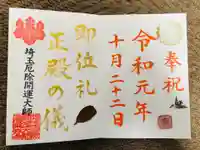 奉祝
令和元年
十月二十二日
即位礼
正殿の儀
埼玉厄除開運大師